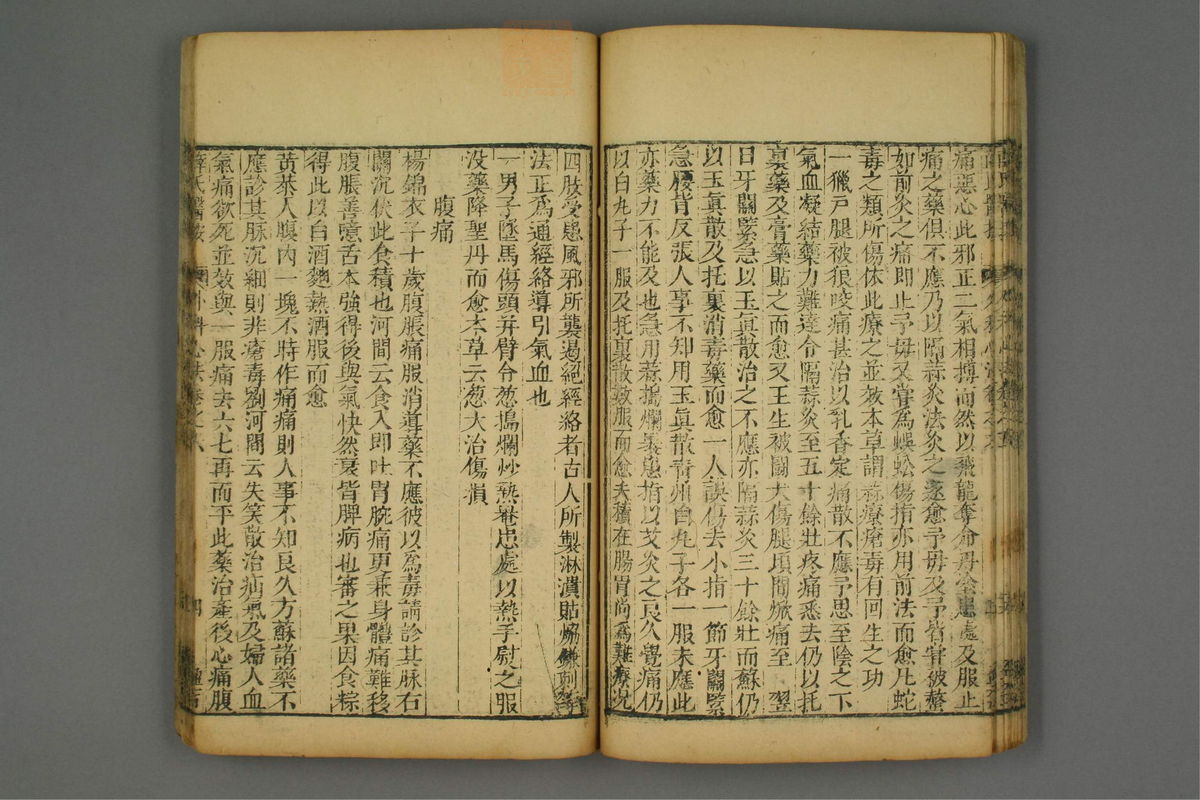 痛惡心此邪正二氣相搏而然以飛龍奪命丹塗患處及服止
痛之藥俱不應乃以隔蒜灸法灸之遂愈予母及予皆嘗被螫
如前灸之痛即止予母又嘗為蜈蚣傷指亦用前法而愈凡蛇
毒之類所傷依此療之並效本草謂蒜療瘡毒有回生之功
一獵戶腿被狼咬痛甚治以乳香定痛散不應予思至陰之下
氣血凝結藥力難達令隔蒜灸至五十餘壯疼痛悉去仍以托
裏藥及膏藥貼之而愈又王生被鬭犬傷腿頃間焮痛至翌
日牙關緊急以玉真散治之不應亦隔蒜灸三十餘壯而蘇仍
以玉真散及托裏消毒藥而愈一人誤傷去小指一節牙關緊
急腰背反張人事不知用玉真散青州白丸子各一服未應此
亦藥力不能及也急用蒜搗爛褁患指以艾灸之良久覺痛仍
以白丸子一服及托裏散數服而愈夫積在腸胃尚為難療况
四肢受患風邪所襲遏絕經絡者古人所製淋漬貼焫鐮刺等
法正為通經絡導引氣血也
一男子墜馬傷頭并臂令葱搗爛炒熱罨患處以熱手熨之服
没藥降聖丹而愈本草云葱大治傷損
腹痛
楊錦衣子十歲腹脹痛服消導藥不應彼以為毒請診其脉右
關沉伏此食積也河間云食入即吐胃脘痛更兼身體痛難移
腹脹善噫舌本強得後與氣快然衰皆脾病也審之果因食粽
得此以白酒麯熱酒服而愈
黃恭人腹內一塊不時作痛痛則人事不知良久方蘇諸藥不
應診其脉沉細則非瘡毒劉河間云失笑散治疝氣及婦人血
氣痛欲死並效與一服痛去六七再而平此藥治產後心痛腹